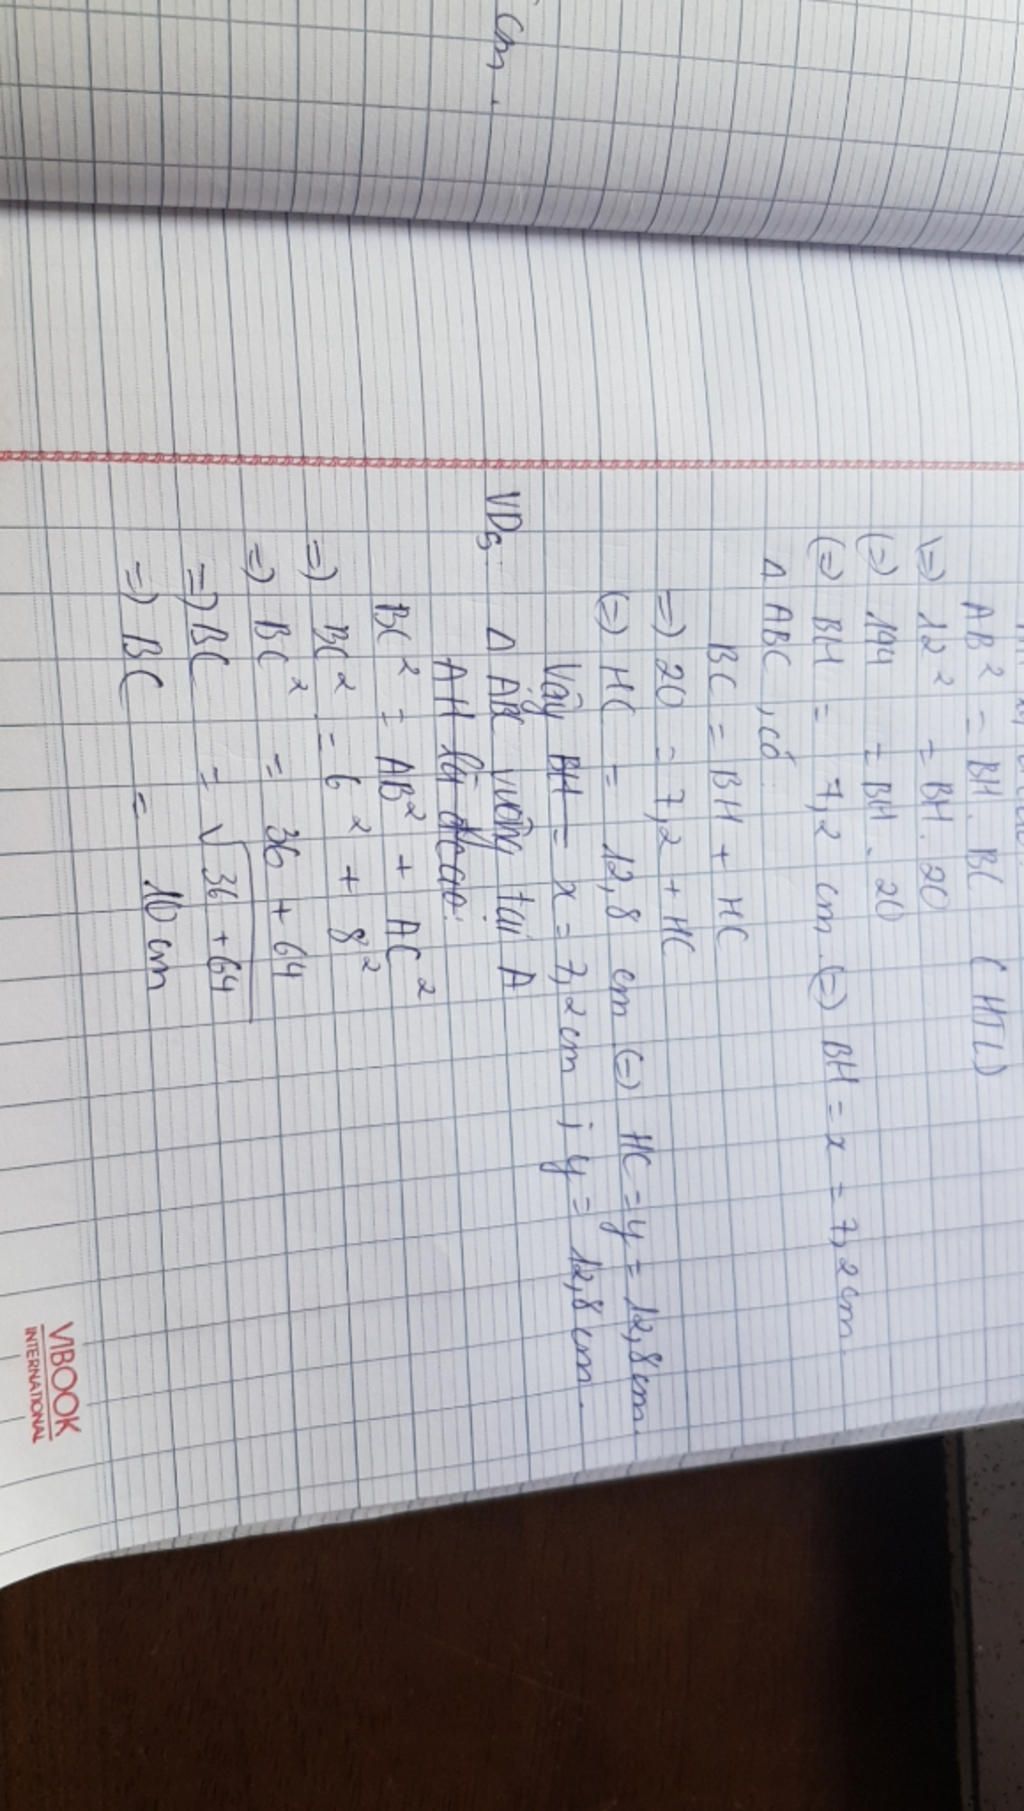 cm.
AB² = BH. BC (HTL)
(=) 12² = BH. 20
(=) 144 = BH. 20
(=) BH = 7,2 cm (=) BH = x = 7,2 cm.
Δ ABC, có:
BC = BH + HC
=) 20 = 7,2 + HC
(=) HC = 12,8 cm (=) HC = y = 12,8 cm.
Vậy BH = x = 7,2 cm ; y = 12,8 cm.
VD5: Δ ABC vuông tại A
AH là đcao:
BC² = AB² + AC²
=) BC² = 6² + 8²
=) BC² = 36 + 64
=) BC = √36 + 64
=) BC = 10 cm
VIBOOK
INTERNATIONAL